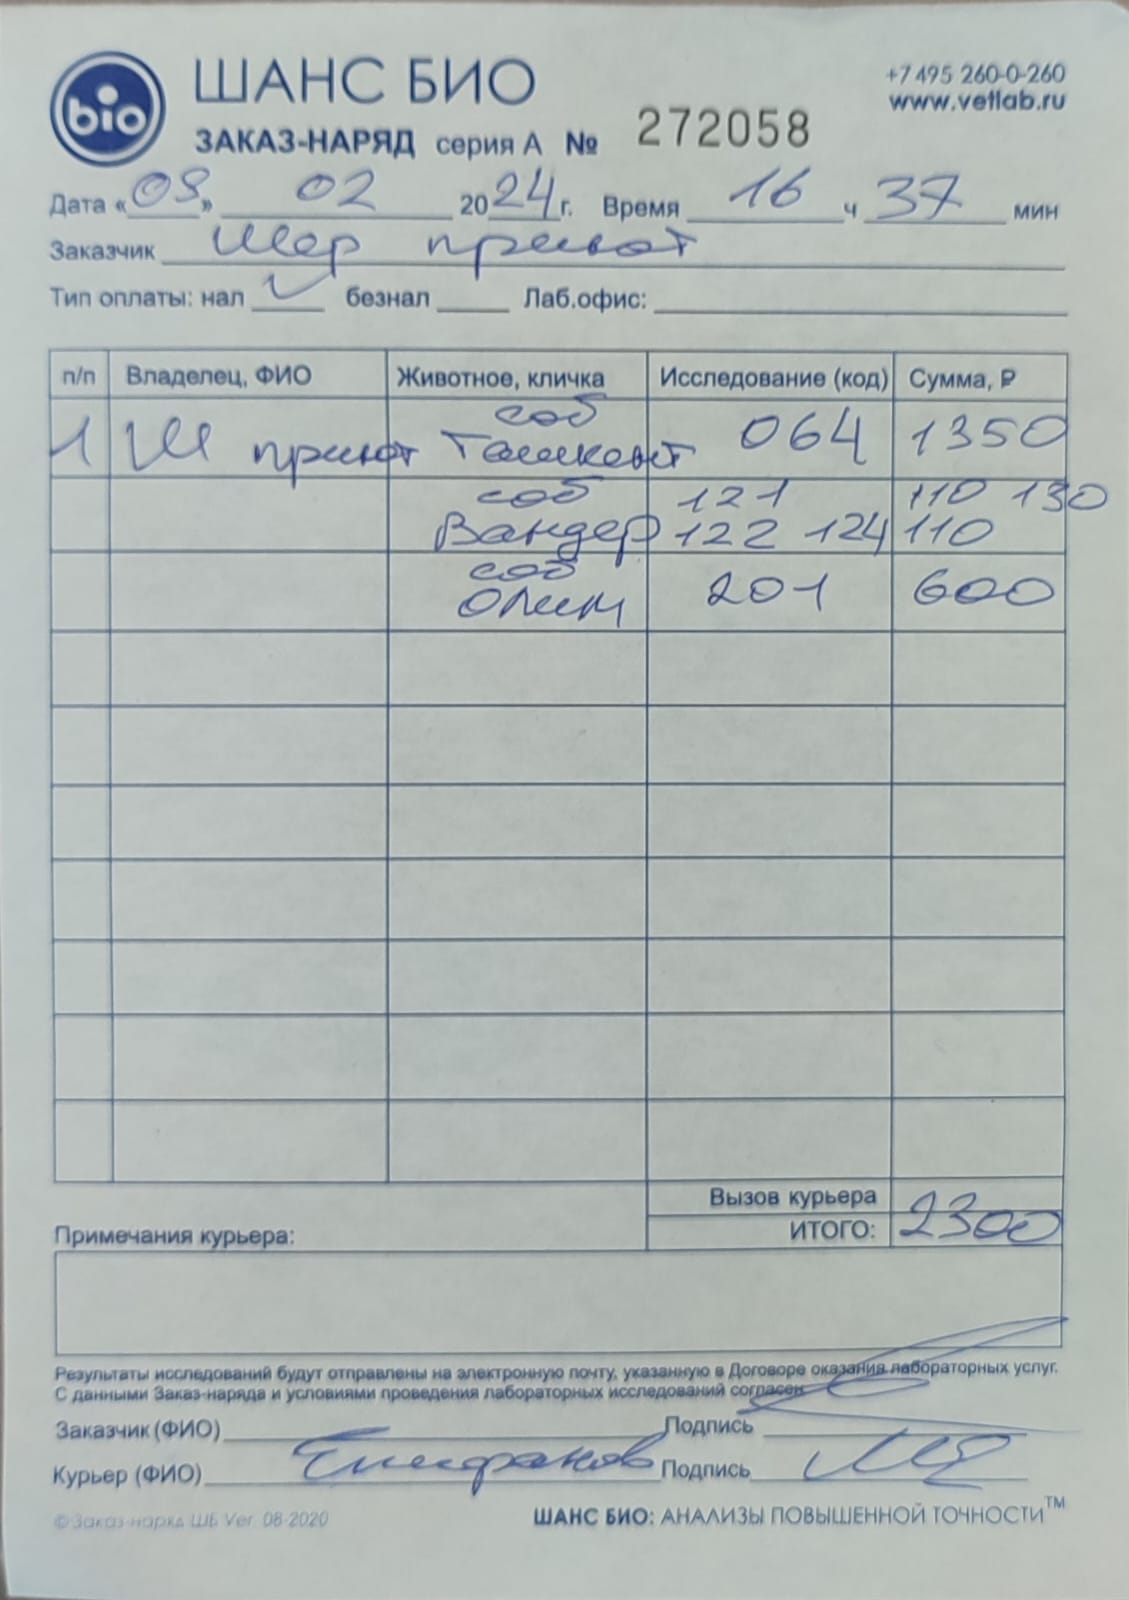 bio
ШАНС БИО
+7 495 260-0-260
www.vetlab.ru
ЗАКАЗ-НАРЯД серия А № 272058
Дата «09» 02 2024 г. Время 16 ч 37 мин
Заказчик Шер приют
Тип оплаты: нал ✓ безнал Лаб.офис:
п/п Владелец, ФИО Животное, кличка Исследование (код) Сумма, ₽
1 Ш приют соб Ташкент 064 1350
соб 121 110 130
Вандер 122 124 110
соб
Олим 201 600
Вызов курьера
ИТОГО: 2300
Примечания курьера:
Результаты исследований будут отправлены на электронную почту, указанную в Договоре оказания лабораторных услуг.
С данными Заказ-наряда и условиями проведения лабораторных исследований согласен
Заказчик (ФИО) Подпись
Курьер (ФИО) Подпись
© Заказ-наряд ШБ Ver. 08-2020
ШАНС БИО: АНАЛИЗЫ ПОВЫШЕННОЙ ТОЧНОСТИ™